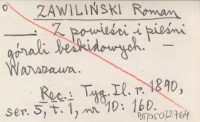 ZAWILIŃSKI Roman
—: Z powieści i pieśni
górali beskidowych. —
Warszawa.
Rec.: Tyg. Il. r. 1890,
ser. 5, t. 1, nr 10: 160.